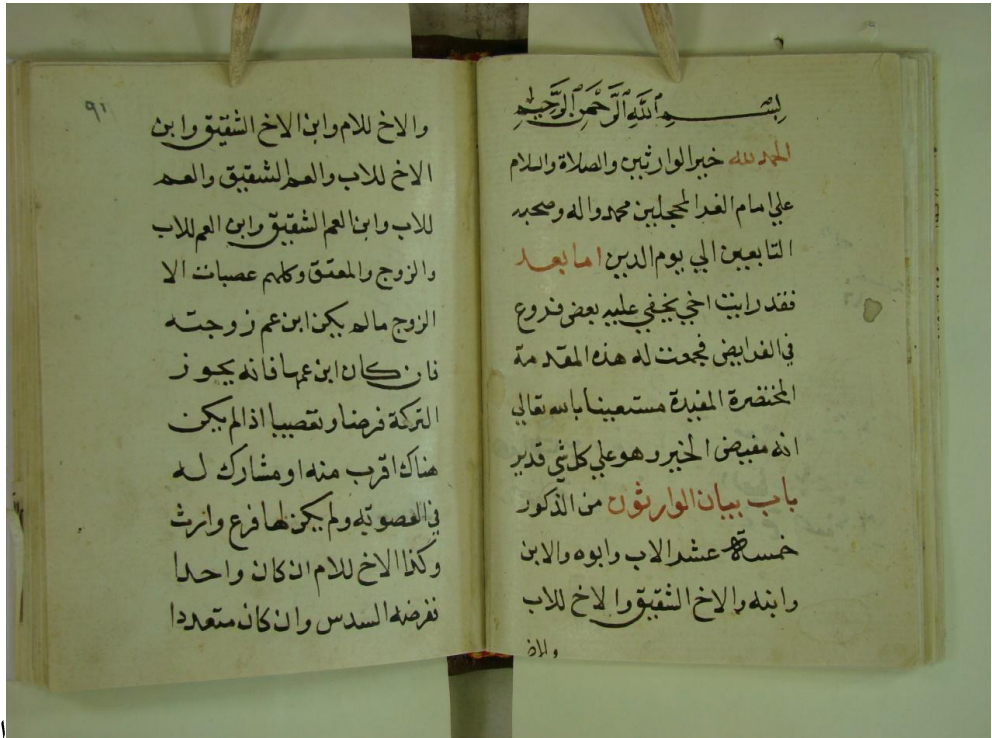 بسم الله الرحمن الرحيم
الحمد لله خير الوارثين والصلاة والسلام
علي امام الغر المحجلين محمد واله وصحبه
التابعين الي يوم الدين اما بعد
فقد رايت اخي يخفي عليه بعض فروع
في الفرايض فجمعت له هذه المقدمة
المختصرة المفيدة مستعينا بالله تعالي
انه مفيض الخير وهو علي كل شي قدير
باب بيان الوارثون من الذكور
خمسة عشر الاب وابوه والابن
وابنه والاخ الشقيق والاخ للاب
والاخ
٩١
والاخ للام وابن الاخ الشقيق وابن
الاخ للاب والعم الشقيق والعم
للاب وابن العم الشقيق وابن العم للاب
والزوج والمعتق وكلهم عصبات الا
الزوج مالم يكن ابن عم زوجته
فان كان ابن عمها فانه يحوز
التركة فرضا وتعصيبا اذا لم يكن
هناك اقرب منه او مشارك له
في العصوبة ولم يكن لها فرع وارث
وكذا الاخ للام ان كان واحدا
ففرضه السدس وان كان متعددا